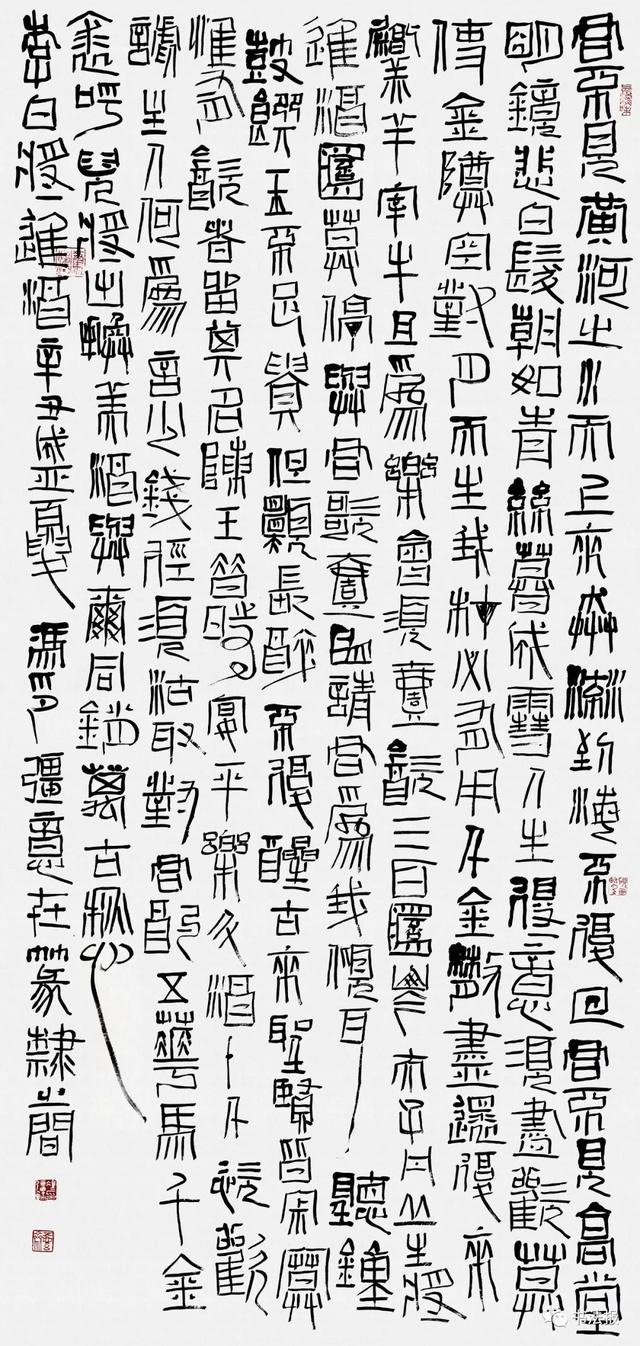 君不見黃河之水天上來奔流到海不復回君不見高堂
明鏡悲白髮朝如青絲暮成雪人生得意須盡歡莫
使金樽空對月天生我材必有用千金散盡還復來
烹羊宰牛且為樂會須壹飲三百杯岑夫子丹丘生將
進酒杯莫停與君歌壹曲請君為我傾耳聽鐘
鼓饌玉不足貴但願長醉不復醒古來聖賢皆寂寞
惟有飲者留其名陳王昔時宴平樂斗酒十千恣歡
謔主人何為言少錢徑須沽取對君酌五華馬千金
裘呼兒將出換美酒與爾同銷萬古愁
李白將進酒辛丑馮印強意在篆隸之間
书法报